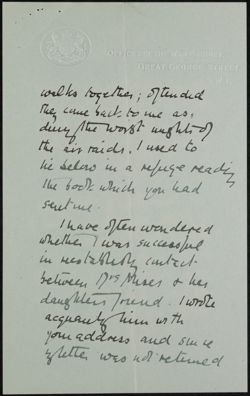 OFFICES OF THE WAR CABINET,
GREAT GEORGE STREET,
S.W.1.
walks together; often did
they come back to me as,
during the worst nights of
the air raids, I used to
lie below in a refuge reading
the book which you had
sent me.
I have often wondered
whether I was successful
in reestablishg contact
between Mrs & her
daughters friend. I wrote
acquaintg him with
your address and since
my letter was not returned